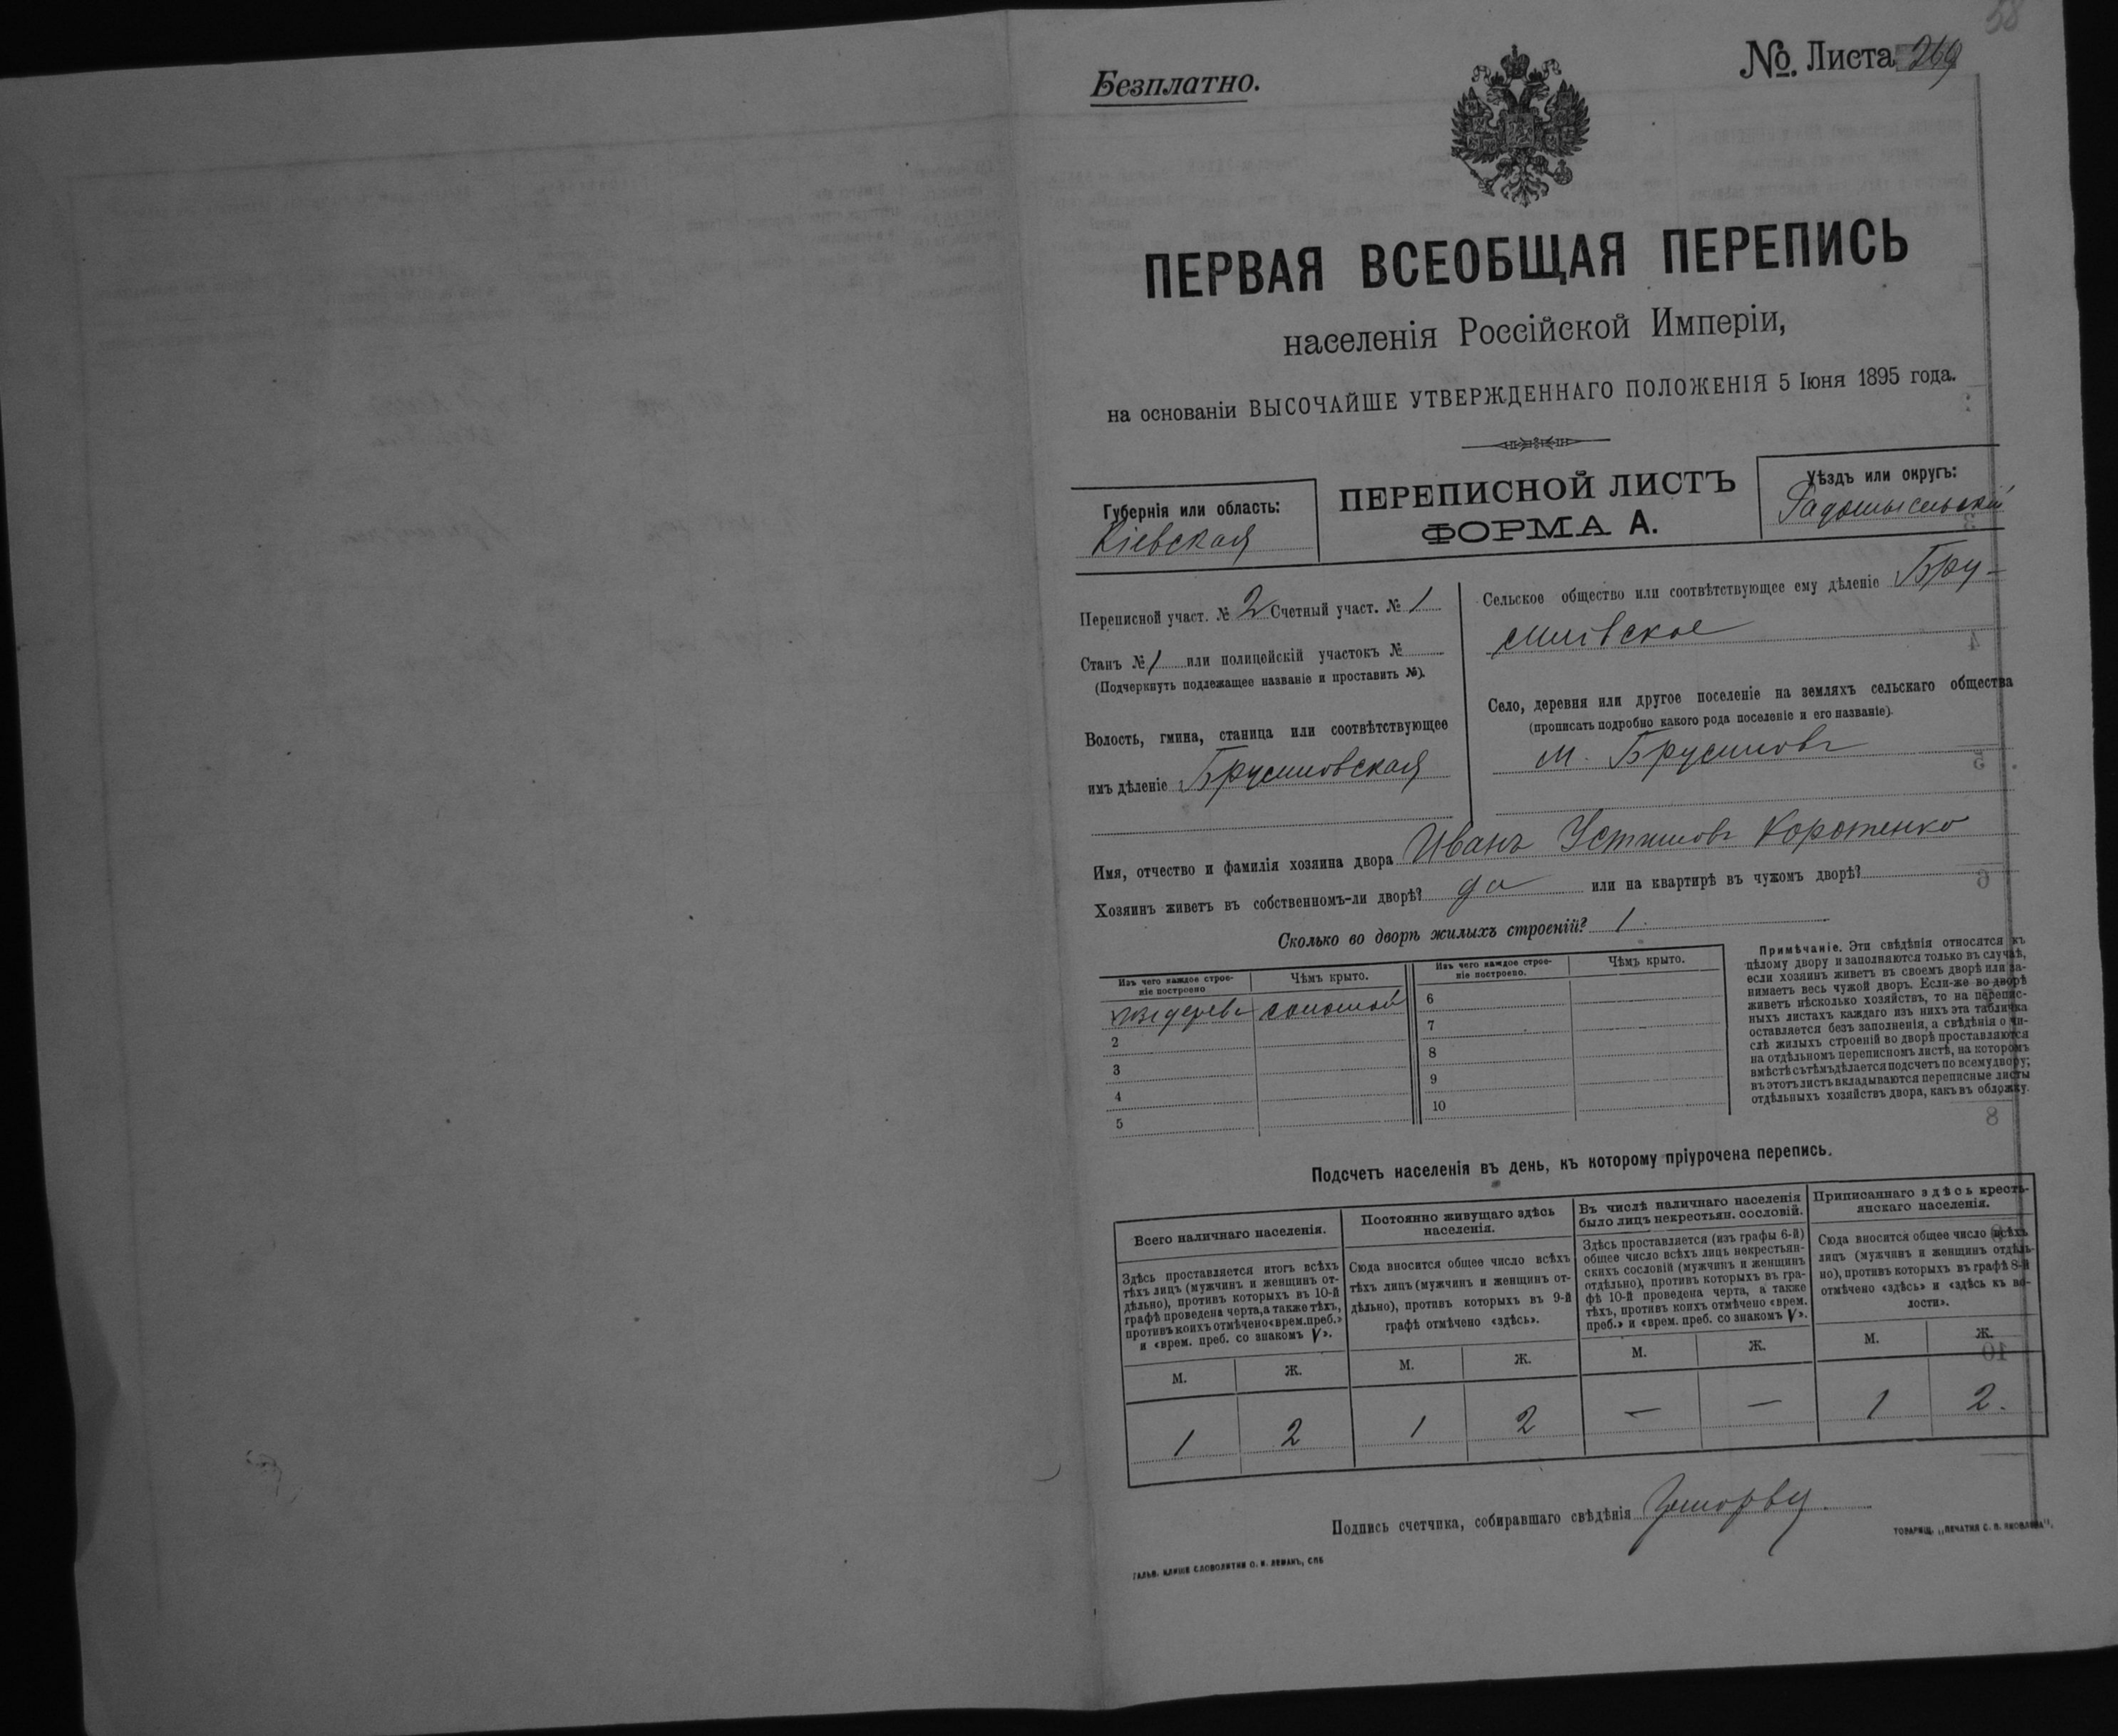 58
Безплатно.
№. Листа 269
ПЕРВАЯ ВСЕОБЩАЯ ПЕРЕПИСЬ
населенія Россійской Имперіи,
на основаніи ВЫСОЧАЙШЕ УТВЕРЖДЕННАГО ПОЛОЖЕНІЯ 5 Іюня 1895 года.
Губернія или область:
Кіевская
ПЕРЕПИСНОЙ ЛИСТЪ
ФОРМА А.
Уѣздъ или округъ:
Радомысльскій
Переписной участ. № 2 Счетный участ. № 1
Станъ № 1 или полицейскій участокъ №
(Подчеркнуть подлежащее названіе и проставить №).
Волость, гмина, станица или соотвѣтствующее
имъ дѣленіе Брусиловская
Сельское общество или соотвѣтствующее ему дѣленіе Бру-
силовское
Село, деревня или другое поселеніе на земляхъ сельскаго общества
(прописать подробно какого рода поселеніе и его названіе).
м. Брусиловъ
Имя, отчество и фамилія хозяина двора Иванъ Устимовъ Коротенко
Хозяинъ живетъ въ собственномъ-ли дворѣ? да или на квартирѣ въ чужомъ дворѣ?
Сколько во дворѣ жилыхъ строеній? 1
Изъ чего каждое строе-
ніе построено
Чѣмъ крыто.
Изъ чего каждое строе-
ніе построено.
Чѣмъ крыто.
изъ дерева соломой
2
3
4
5
6
7
8
9
10
Примѣчаніе. Эти свѣдѣнія относятся къ
цѣлому двору и заполняются только въ случаѣ,
если хозяинъ живетъ въ своемъ дворѣ или за-
нимаетъ весь чужой дворъ. Если-же во дворѣ
живетъ нѣсколько хозяйствъ, то на перепис-
ныхъ листахъ каждаго изъ нихъ эта табличка
оставляется безъ заполненія, а свѣдѣнія о чи-
слѣ жилыхъ строеній во дворѣ проставляются
на отдѣльномъ переписномъ листѣ, на которомъ
вмѣстѣ съ тѣмъ дѣлается подсчетъ по всему двору;
въ этотъ листъ вкладываются переписные листы
отдѣльныхъ хозяйствъ двора, какъ въ обложку.
Подсчетъ населенія въ день, къ которому пріурочена перепись.
Всего наличнаго населенія.
Здѣсь проставляется итогъ всѣхъ
тѣхъ лицъ (мужчинъ и женщинъ от-
дѣльно), противъ которыхъ въ 10-й
графѣ проведена черта, а также тѣхъ,
противъ коихъ отмѣчено «врем. преб.»
и «врем. преб. со знакомъ V».
М. Ж.
1 2
Постоянно живущаго здѣсь
населенія.
Сюда вносится общее число всѣхъ
тѣхъ лицъ (мужчинъ и женщинъ от-
дѣльно), противъ которыхъ въ 9-й
графѣ отмѣчено «здѣсь».
М. Ж.
1 2
Въ числѣ наличнаго населенія
было лицъ некрестьян. сословій.
Здѣсь проставляется (изъ графы 6-й)
общее число всѣхъ лицъ некрестьян-
скихъ сословій (мужчинъ и женщинъ
отдѣльно), противъ которыхъ въ гра-
фѣ 10-й проведена черта, а также
тѣхъ, противъ коихъ отмѣчено «врем.
преб.» и «врем. преб. со знакомъ V».
М. Ж.
— —
Приписаннаго здѣсь кресть-
янскаго населенія.
Сюда вносится общее число всѣхъ
лицъ (мужчинъ и женщинъ отдѣль-
но), противъ которыхъ въ графѣ 8-й
отмѣчено «здѣсь» и «здѣсь къ во-
лости».
М. Ж.
1 2.
Подпись счетчика, собиравшаго свѣдѣнія
ГАЛЬВ. КЛИШЕ СЛОВОЛИТНИ О. И. ЛЕМАНЪ, СПБ
ТОВАРИЩ. „ПЕЧАТНЯ С. П. ЯКОВЛЕВА".